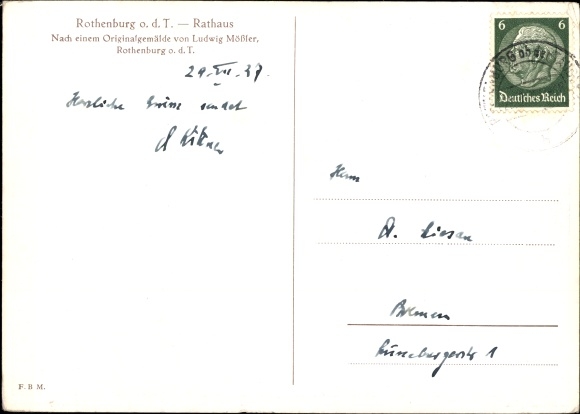 Rothenburg o. d. T. — Rathaus
Nach einem Originalgemälde von Ludwig Mößler,
Rothenburg o. d. T.
29. VII. 37.
Herzliche Grüsse sendet
6 6
Deutsches Reich
ob der
Herrn
Bremen
Lüneburgerstr 1
F. B M.